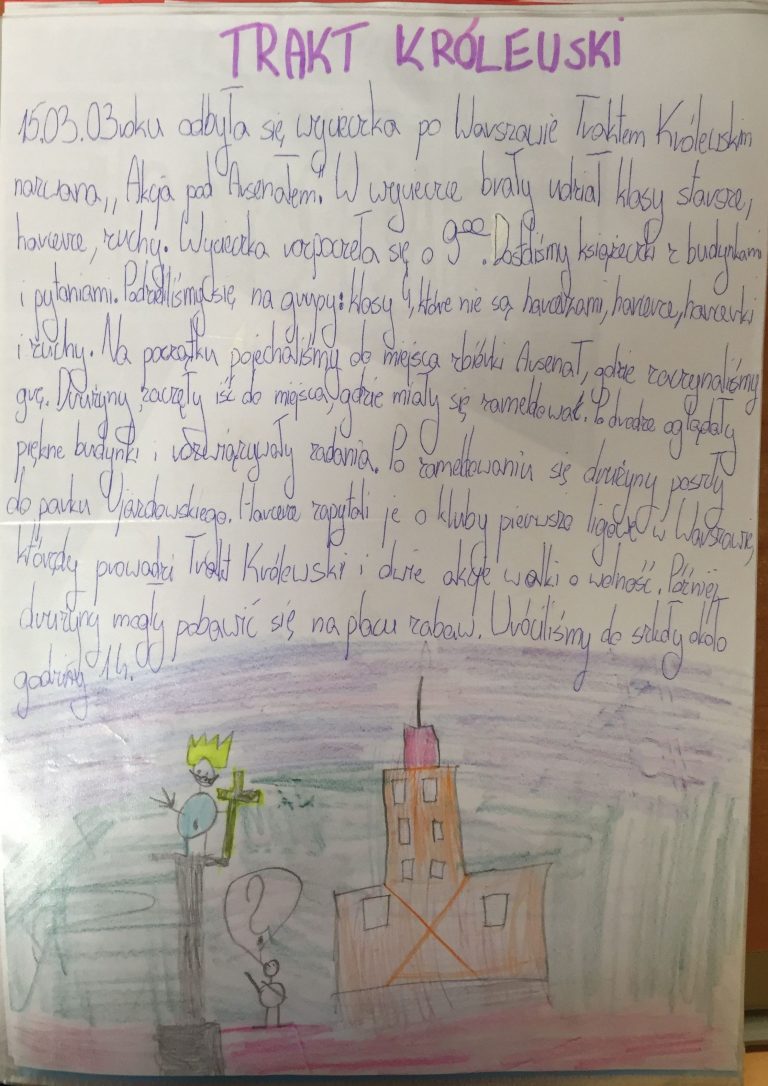 TRAKT KRÓLEUSKI
15.03.03 roku odbyła się wycieczka po Warszawie Traktem Królewskim
nazwana „Akcja pod Arsenałem." W wycieczce brały udział klasy starsze,
harcerze, zuchy. Wycieczka rozpoczeła się o 9⁰⁰. Dostaliśmy książeczki z budynkami
i pytaniami. Podzieliliśmy się na grupy: klasy 4, które nie są harcerzami, harcerze, harcerki
i zuchy. Na początku pojechaliśmy do miejsca zbiórki Arsenał, gdzie zaczynaliśmy
grę. Drużyny zaczęły iść do miejsca, gdzie miały się zameldować. Po drodze oglądały
piękne budynki i rozwiązywały zadania. Po zameldowaniu się drużyny poszły
do parku Ujazdowskiego. Harcerze zapytali je o kluby pierwszo ligowe w Warszawie,
którędy prowadzi Trakt Królewski i dwie akcje walki o wolność. Później
drużyny mogły pobawić się na placu zabaw. Wróciliśmy do szkoły około
godziny 14.
?